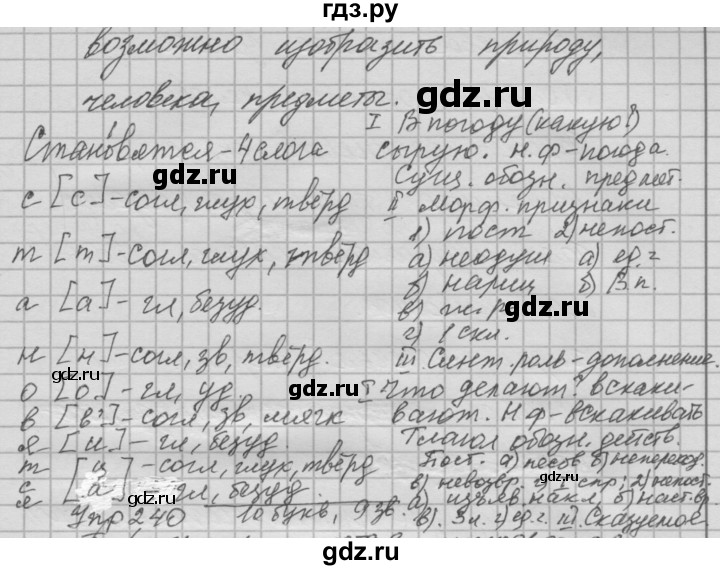 гдз.ру
возможно изобразить природу,
человека, предметы.
Становятся - 4 слога
с [с] - согл, глух, твёрд
т [т] - согл, глух, твёрд
а [а] - гл, безуд.
н [н] - согл, зв, твёрд.
о [о] - гл, уд.
в [в'] - согл, зв, мягк
я [и] - гл, безуд.
т [ц] - согл, глух, твёрд
с
я [а] - гл, безуд.
Упр 240 10 букв, 9 зв.
I В погоду (какую?)
сырую. н.ф - погода.
Сущ. обозн. предмет.
II Морф. признаки
1) пост 2) непост.
а) неодуш а) ед.ч
б) нариц б) В.п.
в) ж.р.
г) 1 скл.
III Синт. роль - дополнение.
I Что делают? вскаки-
вают. Н.ф - вскакивать
Глагол обозн. действ.
Пост. а) несов б) непереход.
в) невозвр. г) спр; 2) непост.
а) изъяв. накл; б) наст.вр
в). 3 л. г) ед.ч. III) Сказуемое.
gdz.ru
gdz.ru
gdz.ru
gdz.ru
gdz.ru
gdz.ru
gdz.ru
gdz.ru